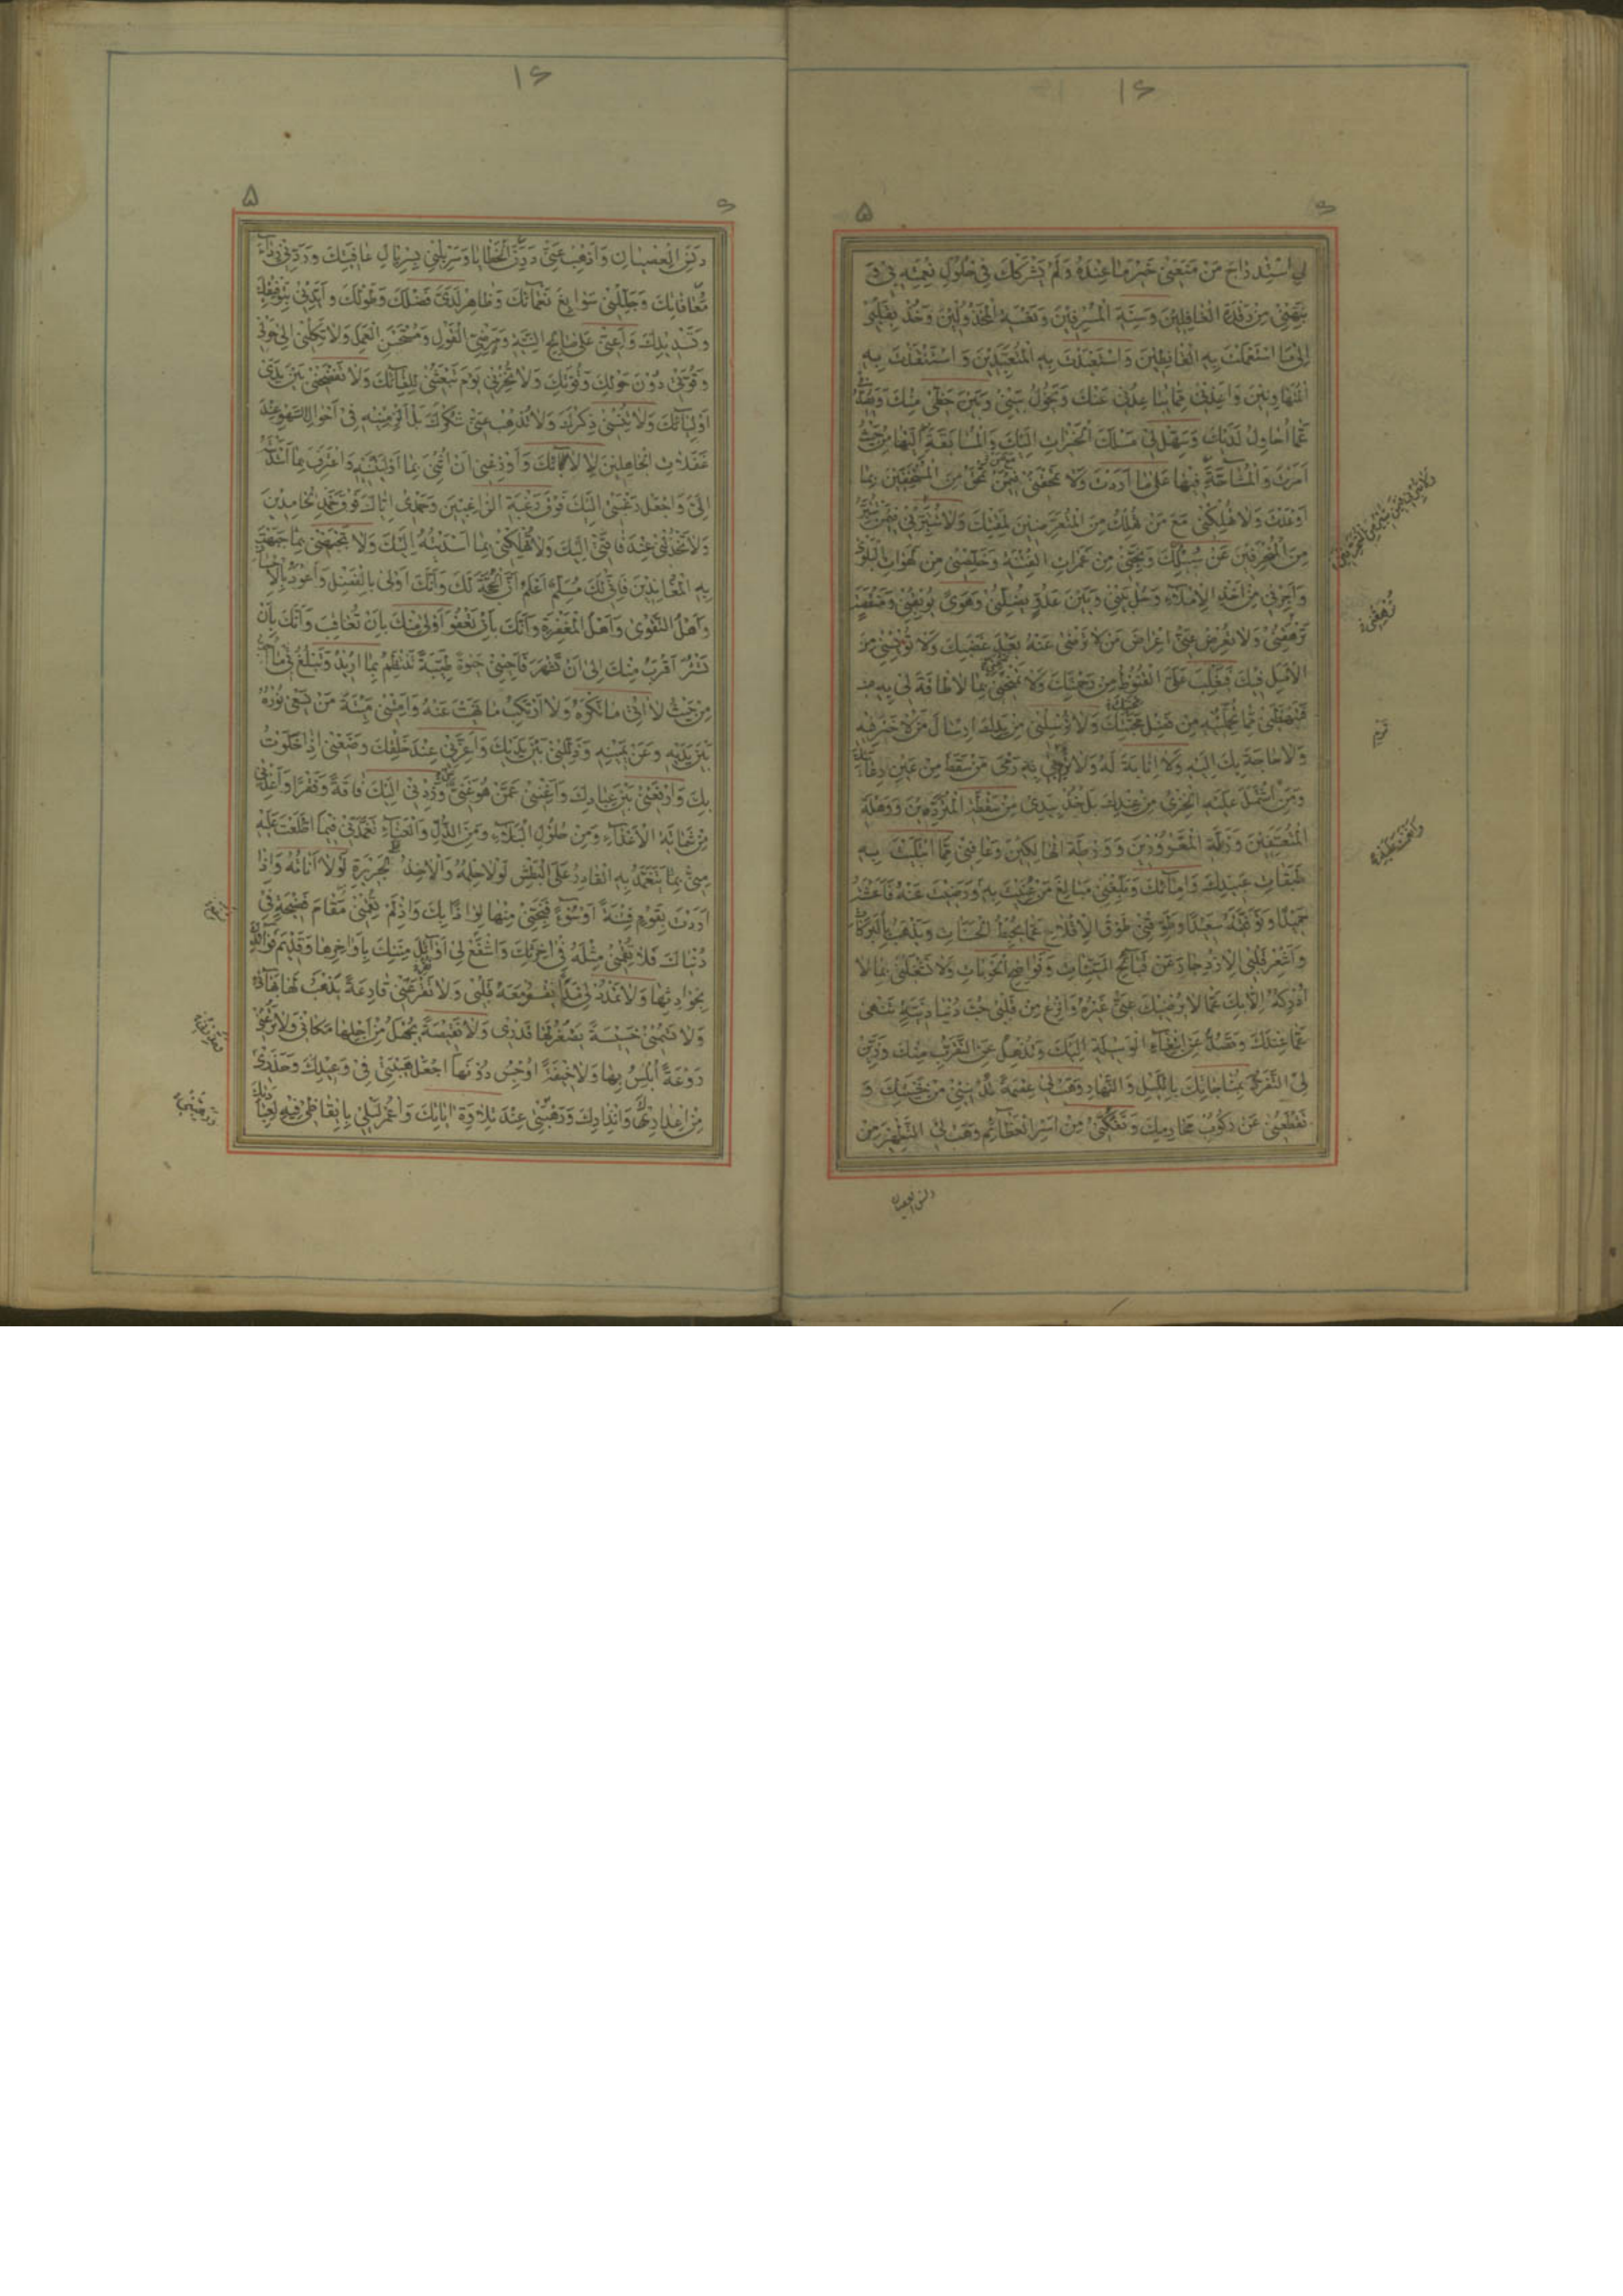 لِي اسْتِدْرَاجَ مَنْ مَنَعَنِي خَيْرَ مَا عِنْدَهُ وَلَمْ يَشْرَكْكَ فِي حُلُولِ نِعْمَتِهِ بِي وَ
نَبِّهْنِي مِنْ رَقْدَةِ الْغَافِلِينَ وَسِنَةِ الْمُسْرِفِينَ وَنَعْسَةِ الْمَخْذُولِينَ وَخُذْ بِقَلْبِي
إِلَى مَا اسْتَعْمَلْتَ بِهِ الْقَانِتِينَ وَاسْتَعْبَدْتَ بِهِ الْمُتَعَبِّدِينَ وَاسْتَنْقَذْتَ بِهِ
الْمُتَهَاوِنِينَ وَأَعِذْنِي مِمَّا يُبَاعِدُنِي عَنْكَ وَيَحُولُ بَيْنِي وَبَيْنَ حَظِّي مِنْكَ وَيَصُدُّنِي
عَمَّا أُحَاوِلُ لَدَيْكَ وَسَهِّلْ لِي مَسْلَكَ الْخَيْرَاتِ إِلَيْكَ وَالْمُسَابَقَةَ إِلَيْهَا مِنْ حَيْثُ
أَمَرْتَ وَالْمُشَاحَّةَ فِيهَا عَلَى مَا أَرَدْتَ وَلَا تَمْحَقْنِي فِيمَنْ تَمْحَقُ مِنَ الْمُسْتَخِفِّينَ بِمَا
أَوْعَدْتَ وَلَا تُهْلِكْنِي مَعَ مَنْ تُهْلِكُ مِنَ الْمُتَعَرِّضِينَ لِمَقْتِكَ وَلَا تُتَبِّرْنِي فِيمَنْ تُتَبِّرُ
مِنَ الْمُنْحَرِفِينَ عَنْ سُبُلِكَ وَنَجِّنِي مِنْ غَمَرَاتِ الْفِتْنَةِ وَخَلِّصْنِي مِنْ لَهَوَاتِ الْبَلْوَى
وَأَجِرْنِي مِنْ أَخْذِ الْإِمْلَاءِ وَحُلْ بَيْنِي وَبَيْنَ عَدُوٍّ يُضِلُّنِي وَهَوًى يُوبِقُنِي وَمَنْقَصَةٍ
تَرْهَقُنِي وَلَا تُعْرِضْ عَنِّي إِعْرَاضَ مَنْ لَا تَرْضَى عَنْهُ بَعْدَ غَضَبِكَ وَلَا تُؤْيِسْنِي مِنَ
الْأَمَلِ فِيكَ فَيَغْلِبَ عَلَيَّ الْقُنُوطُ مِنْ رَحْمَتِكَ وَلَا تَمْنَحْنِي بِمَا لَا طَاقَةَ لِي بِهِ
فَتَبْهَظَنِي مِمَّا تُحَمِّلُنِيهِ مِنْ فَضْلِ مَحَبَّتِكَ وَلَا تُرْسِلْنِي مِنْ يَدِكَ إِرْسَالَ مَنْ لَا خَيْرَ فِيهِ
وَلَا حَاجَةَ بِكَ إِلَيْهِ وَلَا إِنَابَةَ لَهُ وَلَا تَرْمِ بِي رَمْيَ مَنْ سَقَطَ مِنْ عَيْنِ رِعَايَتِكَ
وَمَنِ اشْتَمَلَ عَلَيْهِ الْخِزْيُ مِنْ عِنْدِكَ بَلْ خُذْ بِيَدِي مِنْ سَقْطَةِ الْمُتَرَدِّينَ وَوَهْلَةِ
الْمُتَعَسِّفِينَ وَزَلَّةِ الْمَغْرُورِينَ وَوَرْطَةِ الْهَالِكِينَ وَعَافِنِي مِمَّا ابْتَلَيْتَ بِهِ
طَبَقَاتِ عَبِيدِكَ وَإِمَائِكَ وَبَلِّغْنِي مَبَالِغَ مَنْ عُنِيتَ بِهِ وَرَضِيتَ عَنْهُ فَأَعَشْتَهُ
حَمِيدًا وَتَوَفَّيْتَهُ سَعِيدًا وَطَوِّقْنِي طَوْقَ الْإِقْلَاعِ عَمَّا يُحْبِطُ الْحَسَنَاتِ وَيَذْهَبُ بِالْبَرَكَاتِ
وَأَشْعِرْ قَلْبِيَ الِازْدِجَارَ عَنْ قَبَائِحِ السَّيِّئَاتِ وَفَوَاضِحِ الْحَوْبَاتِ وَلَا تَشْغَلْنِي بِمَا لَا
أُدْرِكُهُ إِلَّا بِكَ عَمَّا لَا يُرْضِيكَ عَنِّي غَيْرُهُ وَانْزِعْ مِنْ قَلْبِي حُبَّ دُنْيَا دَنِيَّةٍ تَنْهَى
عَمَّا عِنْدَكَ وَتَصُدُّ عَنِ ابْتِغَاءِ الْوَسِيلَةِ إِلَيْكَ وَتُذْهِلُ عَنِ التَّقَرُّبِ مِنْكَ وَزَيِّنْ
لِيَ التَّفَرُّدَ بِمُنَاجَاتِكَ بِاللَّيْلِ وَالنَّهَارِ وَهَبْ لِي عِصْمَةً تُدْنِينِي مِنْ خَشْيَتِكَ وَ
تَقْطَعُنِي عَنْ رُكُوبِ مَحَارِمِكَ وَتَفُكُّنِي مِنْ أَسْرِ الْعَظَائِمِ وَهَبْ لِيَ التَّطْهِيرَ مِنْ
دنس العصیان
دَنَسِ الْعِصْيَانِ وَأَذْهِبْ عَنِّي دَرَنَ الْخَطَايَا وَسَرْبِلْنِي بِسِرْبَالِ عَافِيَتِكَ وَرَدِّنِي رِدَاءَ
مُعَافَاتِكَ وَجَلِّلْنِي سَوَابِغَ نَعْمَائِكَ وَظَاهِرْ لَدَيَّ فَضْلَكَ وَطَوْلَكَ وَأَيِّدْنِي بِتَوْفِيقِكَ
وَتَسْدِيدِكَ وَأَعِنِّي عَلَى صَالِحِ النِّيَّةِ وَمَرْضِيِّ الْقَوْلِ وَمُسْتَحْسَنِ الْعَمَلِ وَلَا تَكِلْنِي إِلَى حَوْلِي
وَقُوَّتِي دُونَ حَوْلِكَ وَقُوَّتِكَ وَلَا تُخْزِنِي يَوْمَ تَبْعَثُنِي لِلِقَائِكَ وَلَا تَفْضَحْنِي بَيْنَ يَدَيْ
أَوْلِيَائِكَ وَلَا تُنْسِنِي ذِكْرَكَ وَلَا تُذْهِبْ عَنِّي شُكْرَكَ بَلْ أَلْزِمْنِيهِ فِي أَحْوَالِ السَّهْوِ عِنْدَ
غَفَلَاتِ الْجَاهِلِينَ لِآلَائِكَ وَأَوْزِعْنِي أَنْ أُثْنِيَ بِمَا أَوْلَيْتَنِيهِ وَأَعْتَرِفَ بِمَا أَسْدَيْتَهُ
إِلَيَّ وَاجْعَلْ رَغْبَتِي إِلَيْكَ فَوْقَ رَغْبَةِ الرَّاغِبِينَ وَحَمْدِي إِيَّاكَ فَوْقَ حَمْدِ الْحَامِدِينَ
وَلَا تَخْذُلْنِي عِنْدَ فَاقَتِي إِلَيْكَ وَلَا تُهْلِكْنِي بِمَا أَسْدَيْتُهُ إِلَيْكَ وَلَا تَجْبَهْنِي بِمَا جَبَهْتَ
بِهِ الْمُعَانِدِينَ فَإِنِّي لَكَ مُسَلِّمٌ أَعْلَمُ أَنَّ الْحُجَّةَ لَكَ وَأَنَّكَ أَوْلَى بِالْفَضْلِ وَأَعْوَدُ بِالْإِحْسَانِ
وَأَهْلُ التَّقْوَى وَأَهْلُ الْمَغْفِرَةِ وَأَنَّكَ بِأَنْ تَعْفُوَ أَوْلَى مِنْكَ بِأَنْ تُعَاقِبَ وَأَنَّكَ بِأَنْ
تَسْتُرَ أَقْرَبُ مِنْكَ إِلَى أَنْ تَشْهَرَ فَأَحْيِنِي حَيَوةً طَيِّبَةً تَنْتَظِمُ بِمَا أُرِيدُ وَتَبْلُغُ بِي مَا أُحِبُّ
مِنْ حَيْثُ لَا آتِي مَا تَكْرَهُ وَلَا أَرْتَكِبُ مَا نَهَيْتَ عَنْهُ وَأَمِتْنِي مِيتَةَ مَنْ يَسْعَى نُورُهُ
بَيْنَ يَدَيْهِ وَعَنْ يَمِينِهِ وَذَلِّلْنِي بَيْنَ يَدَيْكَ وَأَعِزَّنِي عِنْدَ خَلْقِكَ وَضَعْنِي إِذَا خَلَوْتُ
بِكَ وَارْفَعْنِي بَيْنَ عِبَادِكَ وَأَغْنِنِي عَمَّنْ هُوَ غَنِيٌّ عَنِّي وَزِدْنِي إِلَيْكَ فَاقَةً وَفَقْرًا وَأَعِذْنِي
مِنْ شَمَاتَةِ الْأَعْدَاءِ وَمِنْ حُلُولِ الْبَلَاءِ وَمِنَ الذُّلِّ وَالْعَنَاءِ تَغَمَّدْنِي فِيمَا اطَّلَعْتَ عَلَيْهِ
مِنِّي بِمَا يَتَغَمَّدُ بِهِ الْقَادِرُ عَلَى الْبَطْشِ لَوْلَا حِلْمُهُ وَالْآخِذُ عَلَى الْجَرِيرَةِ لَوْلَا أَنَاتُهُ وَإِذَا
أَرَدْتَ بِقَوْمٍ فِتْنَةً أَوْ سُوءًا فَنَجِّنِي مِنْهَا لِوَاذًا بِكَ وَإِذْ لَمْ تُقِمْنِي مَقَامَ فَضِيحَةٍ فِي
دُنْيَاكَ فَلَا تُقِمْنِي مِثْلَهُ فِي آخِرَتِكَ وَاشْفَعْ لِي أَوَائِلَ مِنَنِكَ بِأَوَاخِرِهَا وَقَدِيمَ فَوَائِدِكَ
بِحَوَادِثِهَا وَلَا تَمْدُدْ لِي مَدًّا يَقْسُو مَعَهُ قَلْبِي وَلَا تَقْرَعْنِي قَارِعَةً يَذْهَبُ لَهَا بَهَائِي
وَلَا تَسُمْنِي خَسِيسَةً يَصْغُرُ لَهَا قَدْرِي وَلَا نَقِيصَةً يُجْهَلُ مِنْ أَجْلِهَا مَكَانِي وَلَا تَرُعْنِي
رَوْعَةً أُبْلِسُ بِهَا وَلَا خِيفَةً أُوجِسُ دُونَهَا اجْعَلْ هَيْبَتِي فِي وَعِيدِكَ وَحَذَرِي
مِنْ إِعْذَارِكَ وَإِنْذَارِكَ وَرَهْبَتِي عِنْدَ تِلَاوَةِ آيَاتِكَ وَاعْمُرْ لَيْلِي بِإِيقَاظِي فِيهِ لِعِبَادَتِكَ